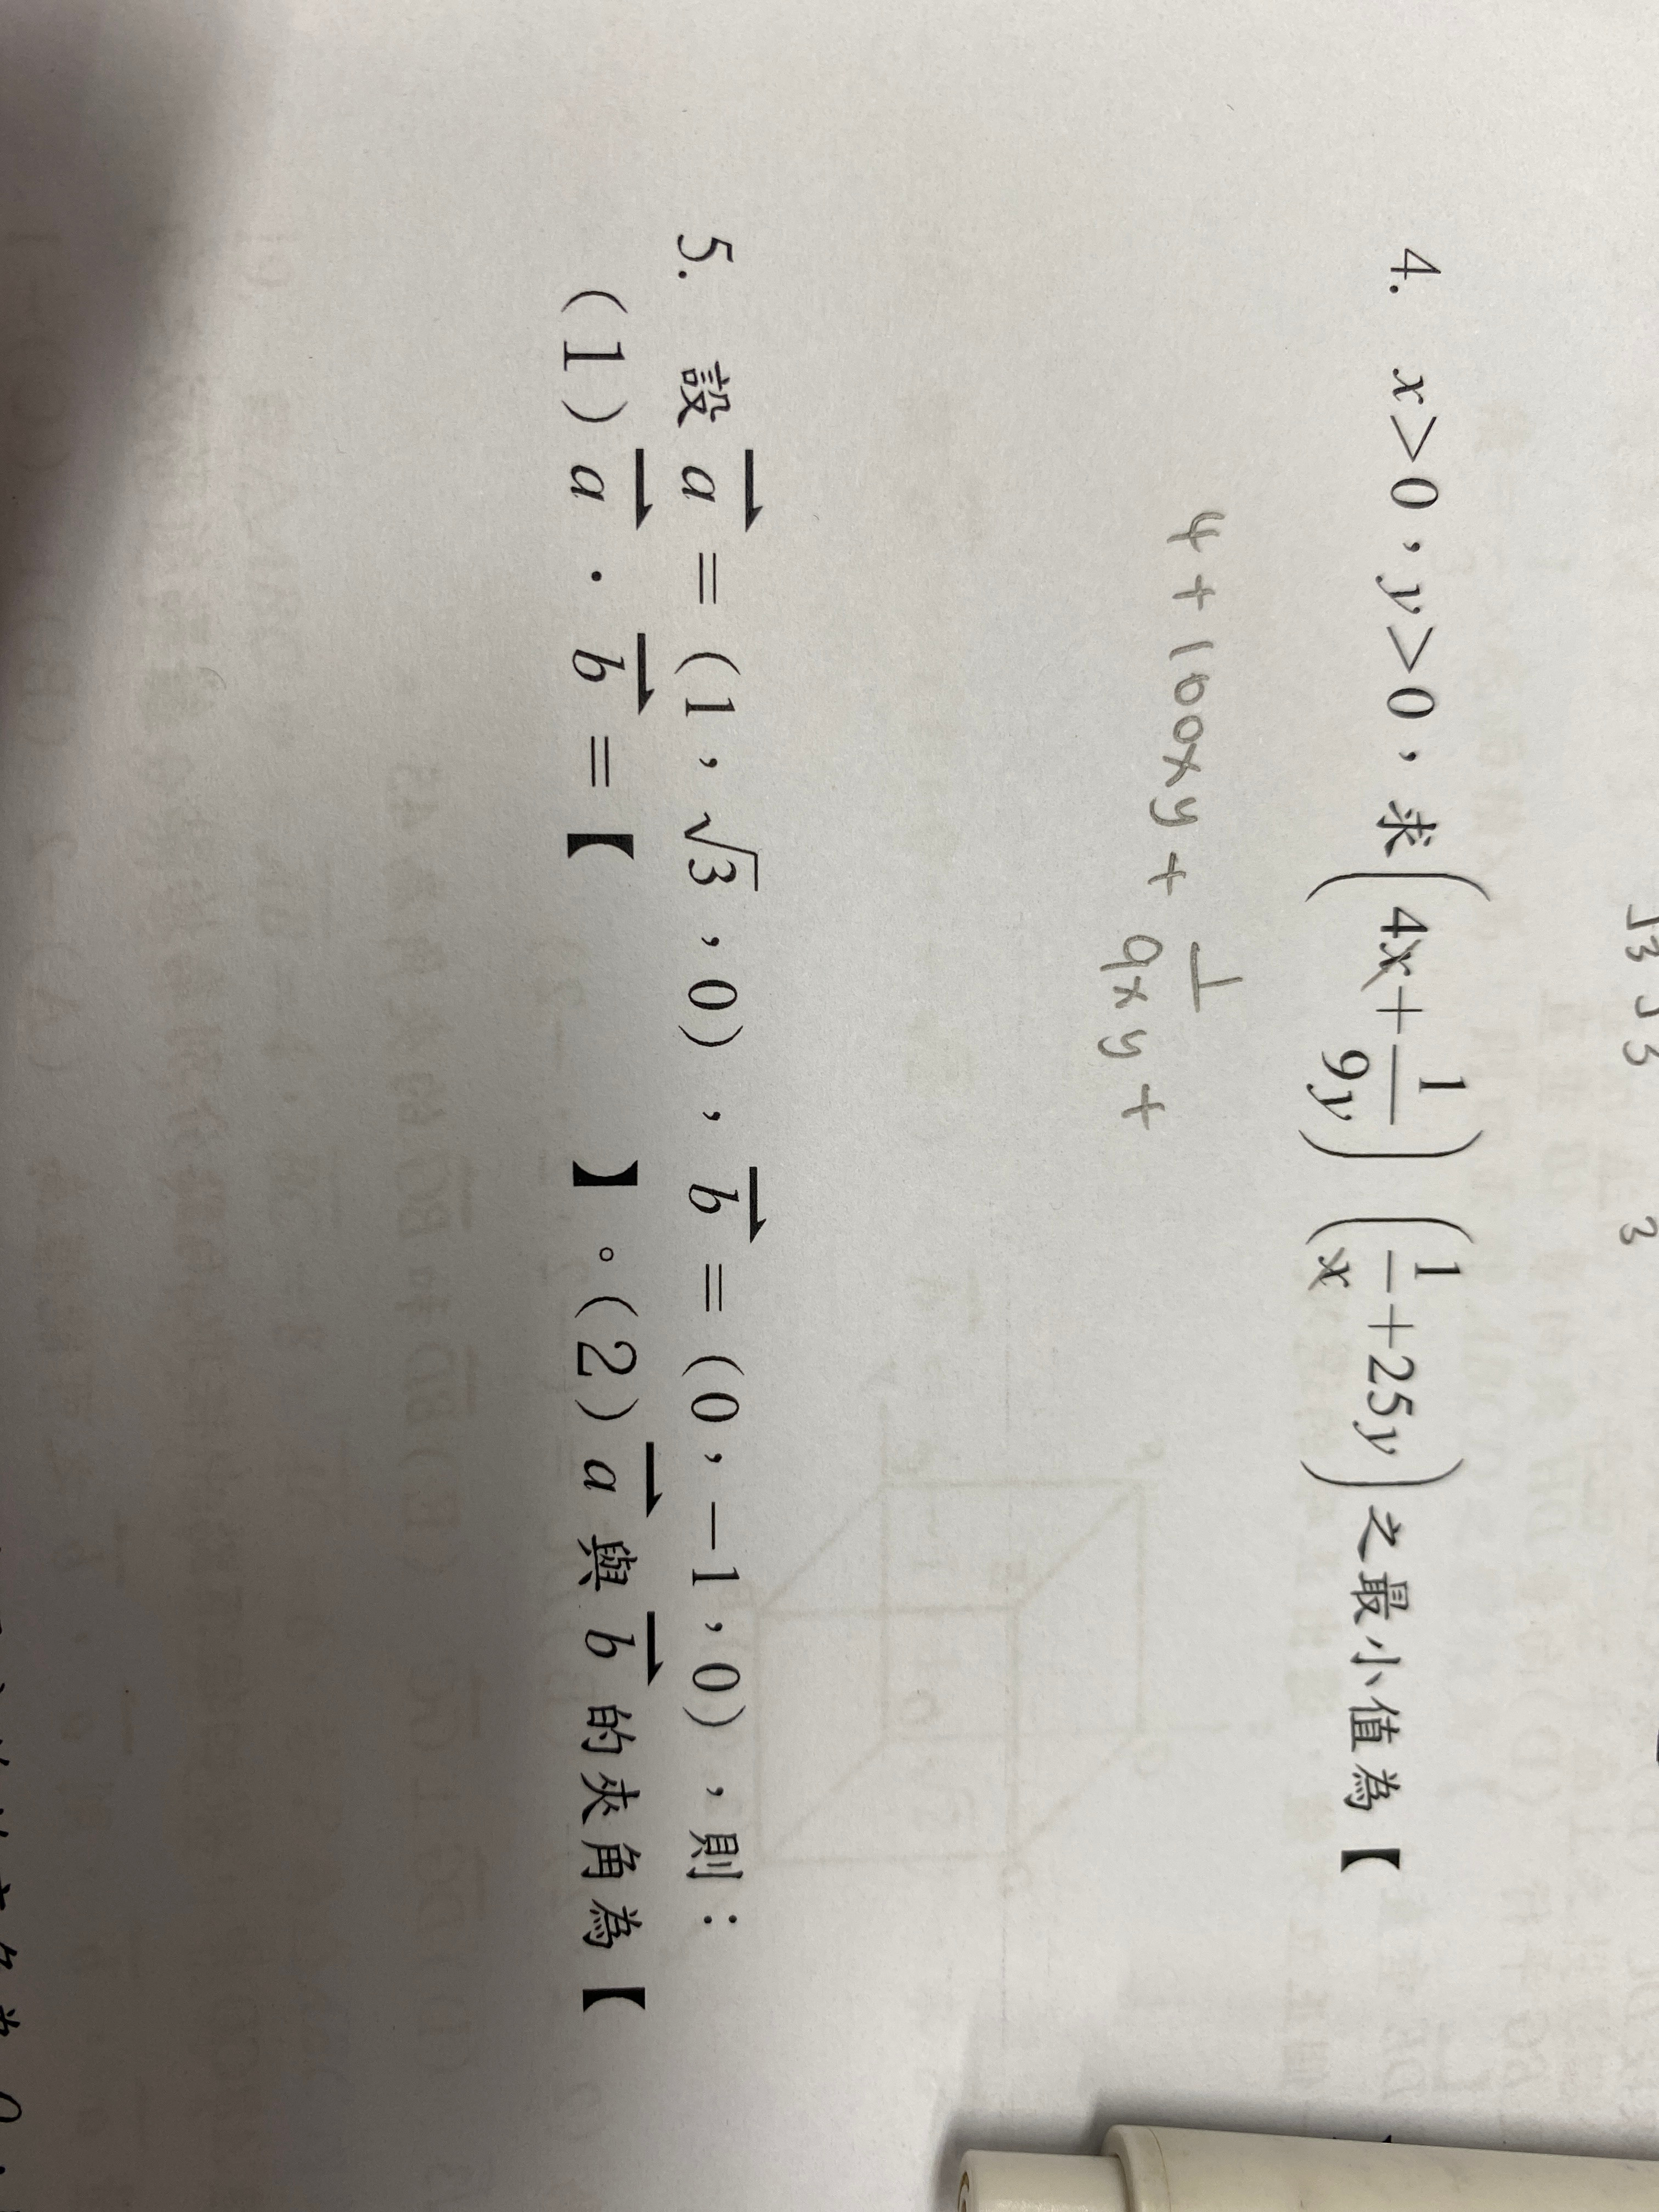 4. x>0,y>0,求(4x+1/9y)(1/x+25y)之最小值為【
4+100xy+1/9xy+
5. 設 a⃗=(1,√3,0),b⃗=(0,-1,0),則:
(1)a⃗·b⃗=【 】。(2)a⃗與b⃗的夾角為【